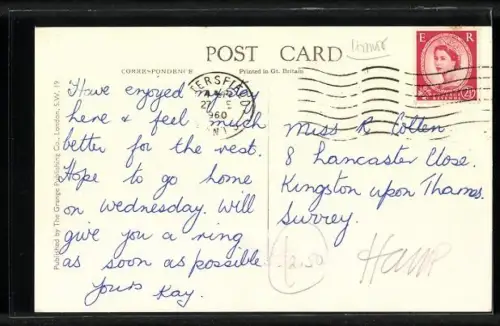 POST CARD
CORRESPONDENCE
Printed in Gt. Britain
E R
Have enjoyed my stay
here & feel much
better for the rest.
Hope to go home
on Wednesday. Will
give you a ring
as soon as possible.
Yours Kay.
Miss R Cotten
8 Lancaster Close.
Kingston upon Thames.
Surrey.
£2.50
Published by The Grange Publishing Co., London, S.W. 19